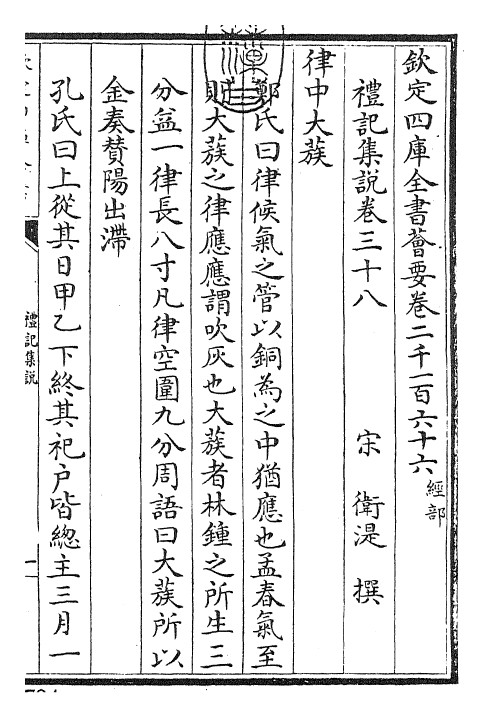 欽定四庫全書薈要卷二千一百六十六經部
禮記集說卷三十八
宋 衛湜 撰
律中大蔟
鄭氏曰律候氣之管以銅為之中猶應也孟春氣至
則大蔟之律應應謂吹灰也大蔟者林鍾之所生三
分益一律長八寸凡律空圍九分周語曰大蔟所以
金奏賛陽出滯
孔氏曰上從其日甲乙下終其祀户皆總主三月一
禮記集説
一